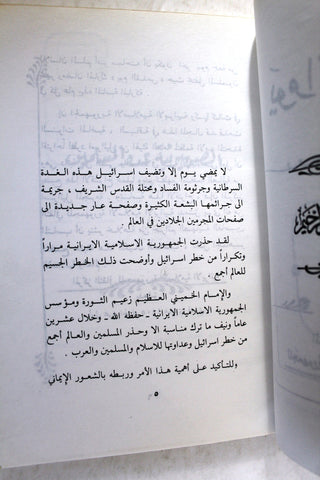 لا يمضي يوم إلا وتضيف اسرائيل هذه الغدة
السرطانية وجرثومة الفساد ومحتلة القدس الشريف ، جريمة
الى جرائمها البشعة الكثيرة وصفحة عار جديدة الى
صفحات المجرمين الجلادين في العالم .
لقد حذرت الجمهورية الاسلامية الايرانية مراراً
وتكراراً من خطر اسرائيل وأوضحت ذلك الخطر الجسيم
للعالم أجمع .
والإمام الخميني العظيم زعيم الثورة ومؤسس
الجمهورية الاسلامية الايرانية ـ حفظه الله ـ وخلال عشرين
عاماً ونيف ما ترك مناسبة الا وحذر المسلمين والعالم أجمع
من خطر اسرائيل وعداوتها للاسلام والمسلمين والعرب .
وللتأكيد على أهمية هذا الأمر وربطه بالشعور الإيماني
٥